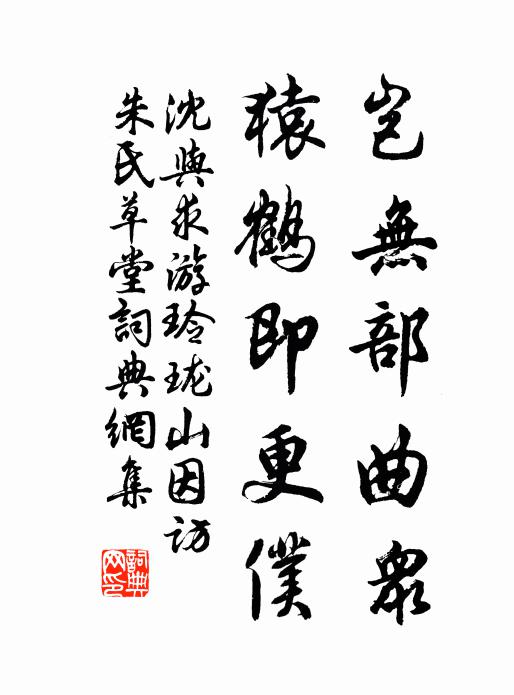 豈無部曲衆
猿鶴即更僕
沈與求游玲瓏山因訪
朱氏草堂詞典網集
詞典網印